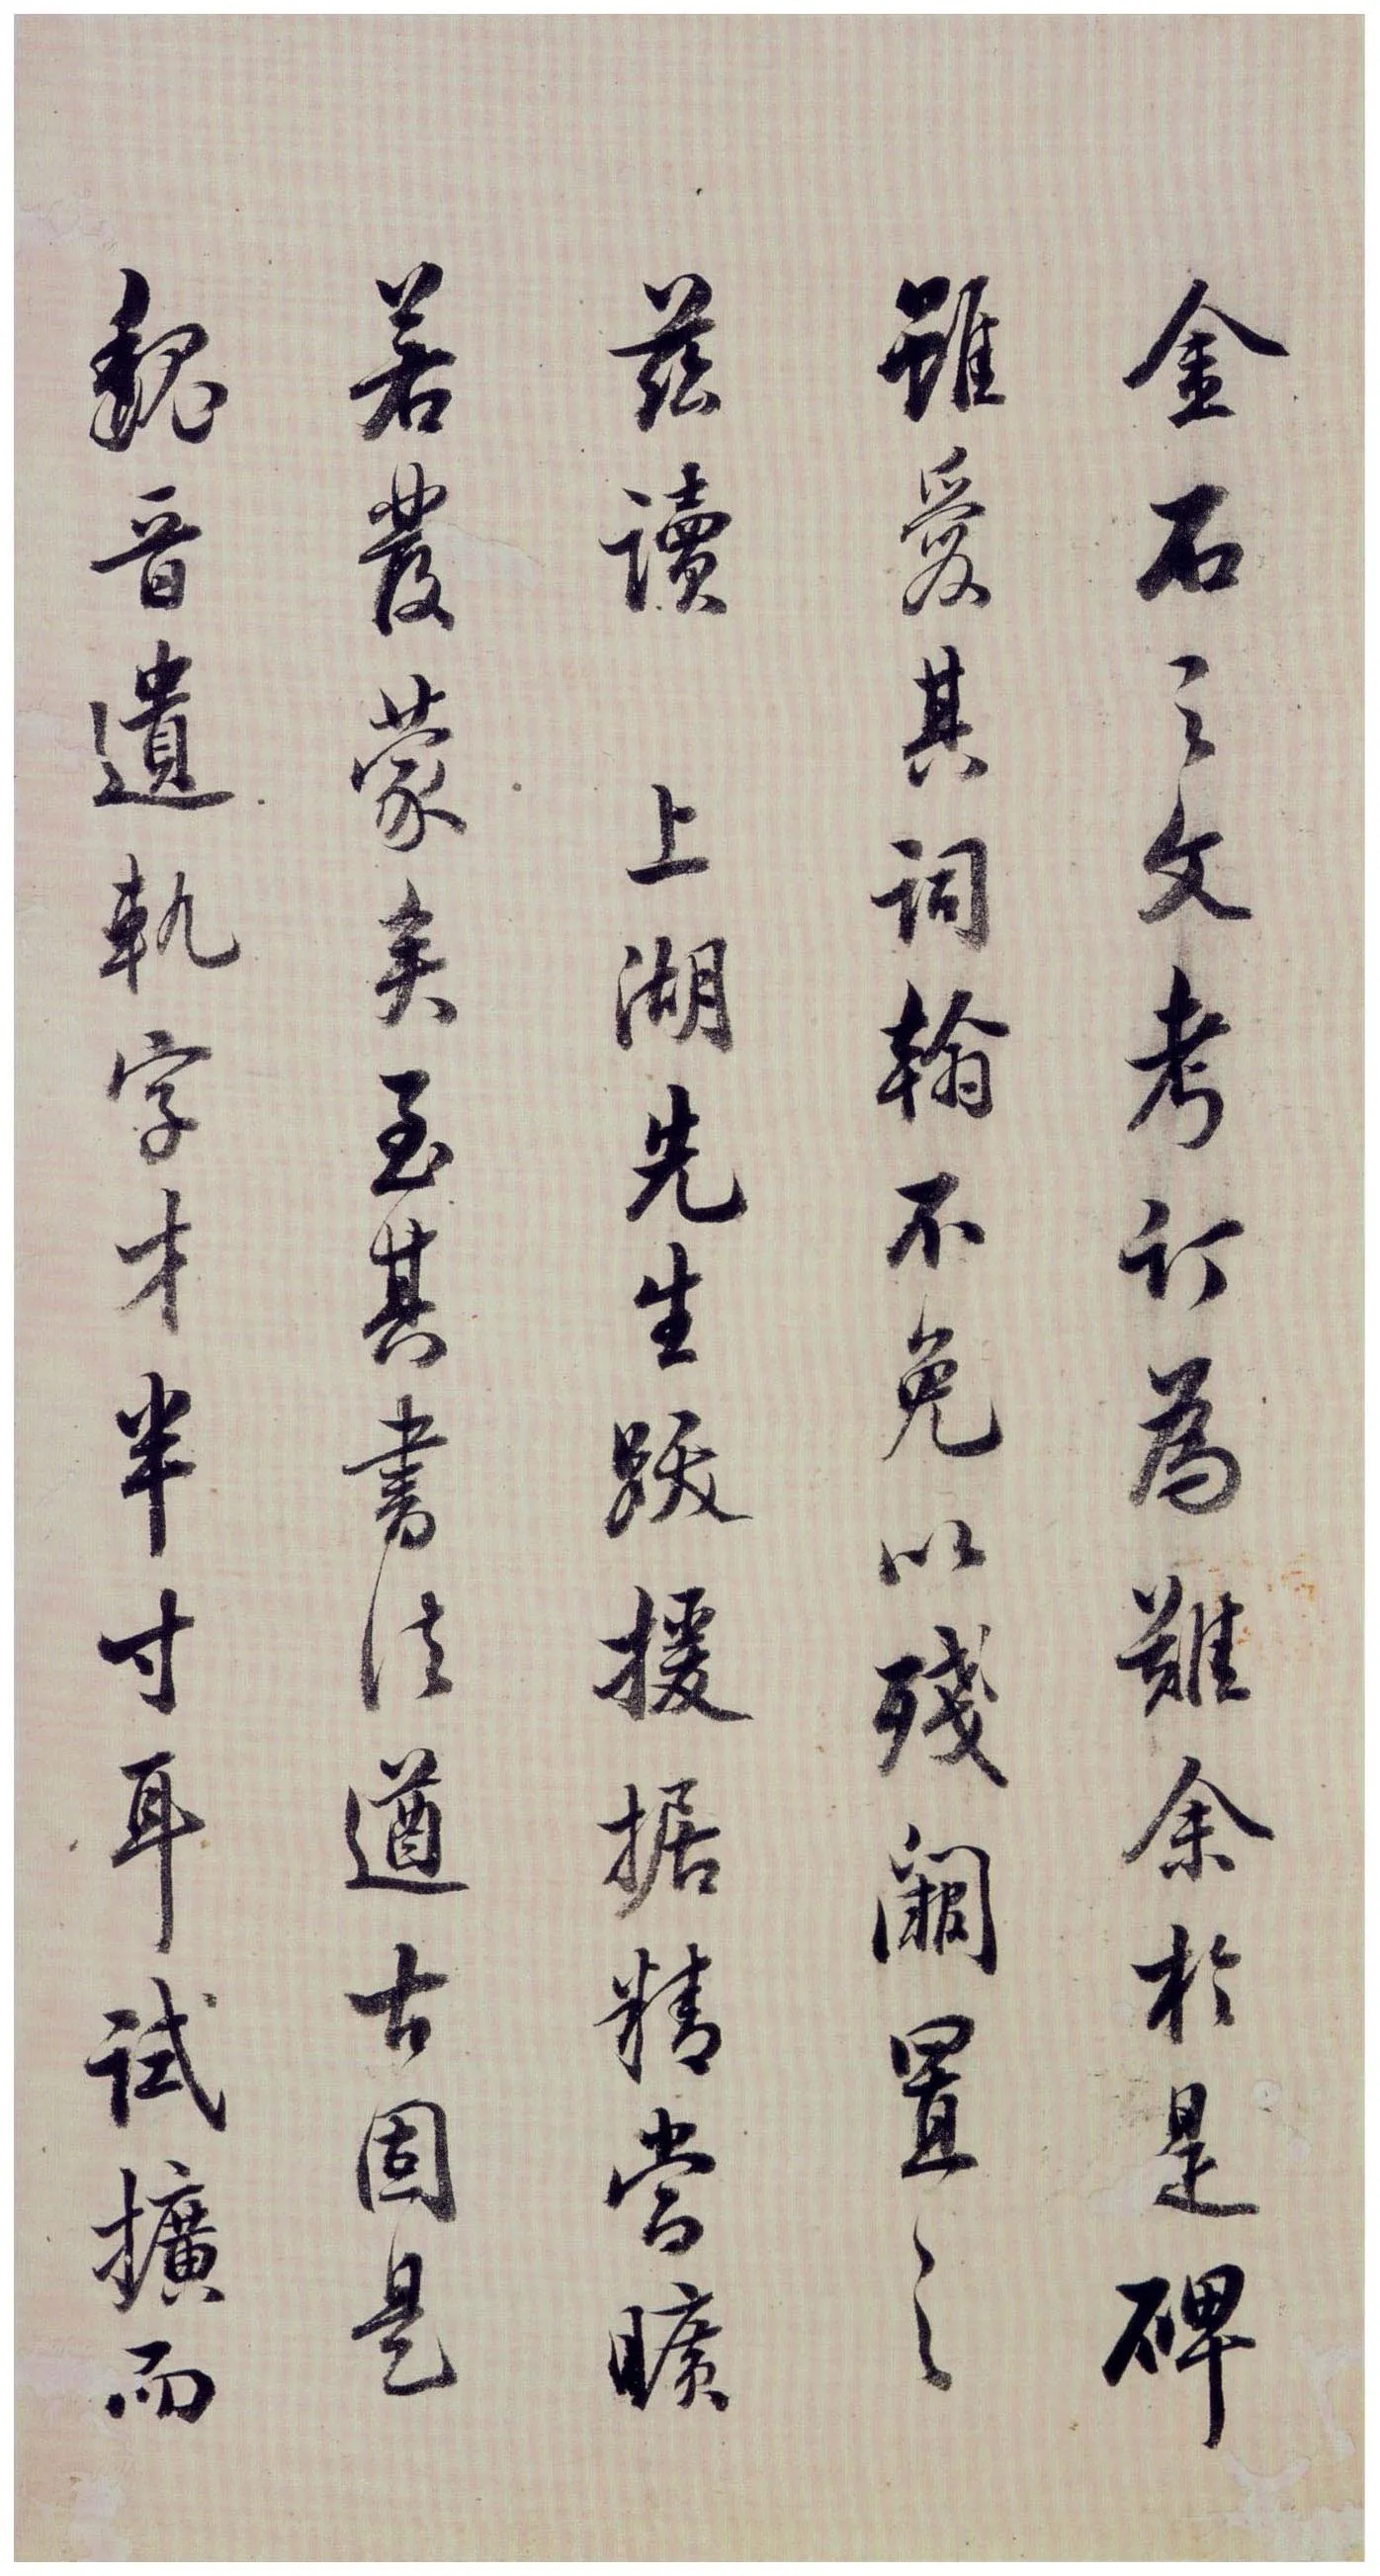 金石之文考訂為難余於是碑
雖愛其詞翰不免以殘闕置之
茲讀　上湖先生跋援據精當曠
若發蒙矣至其書法遒古固是
魏晉遺軌字才半寸耳試擴而